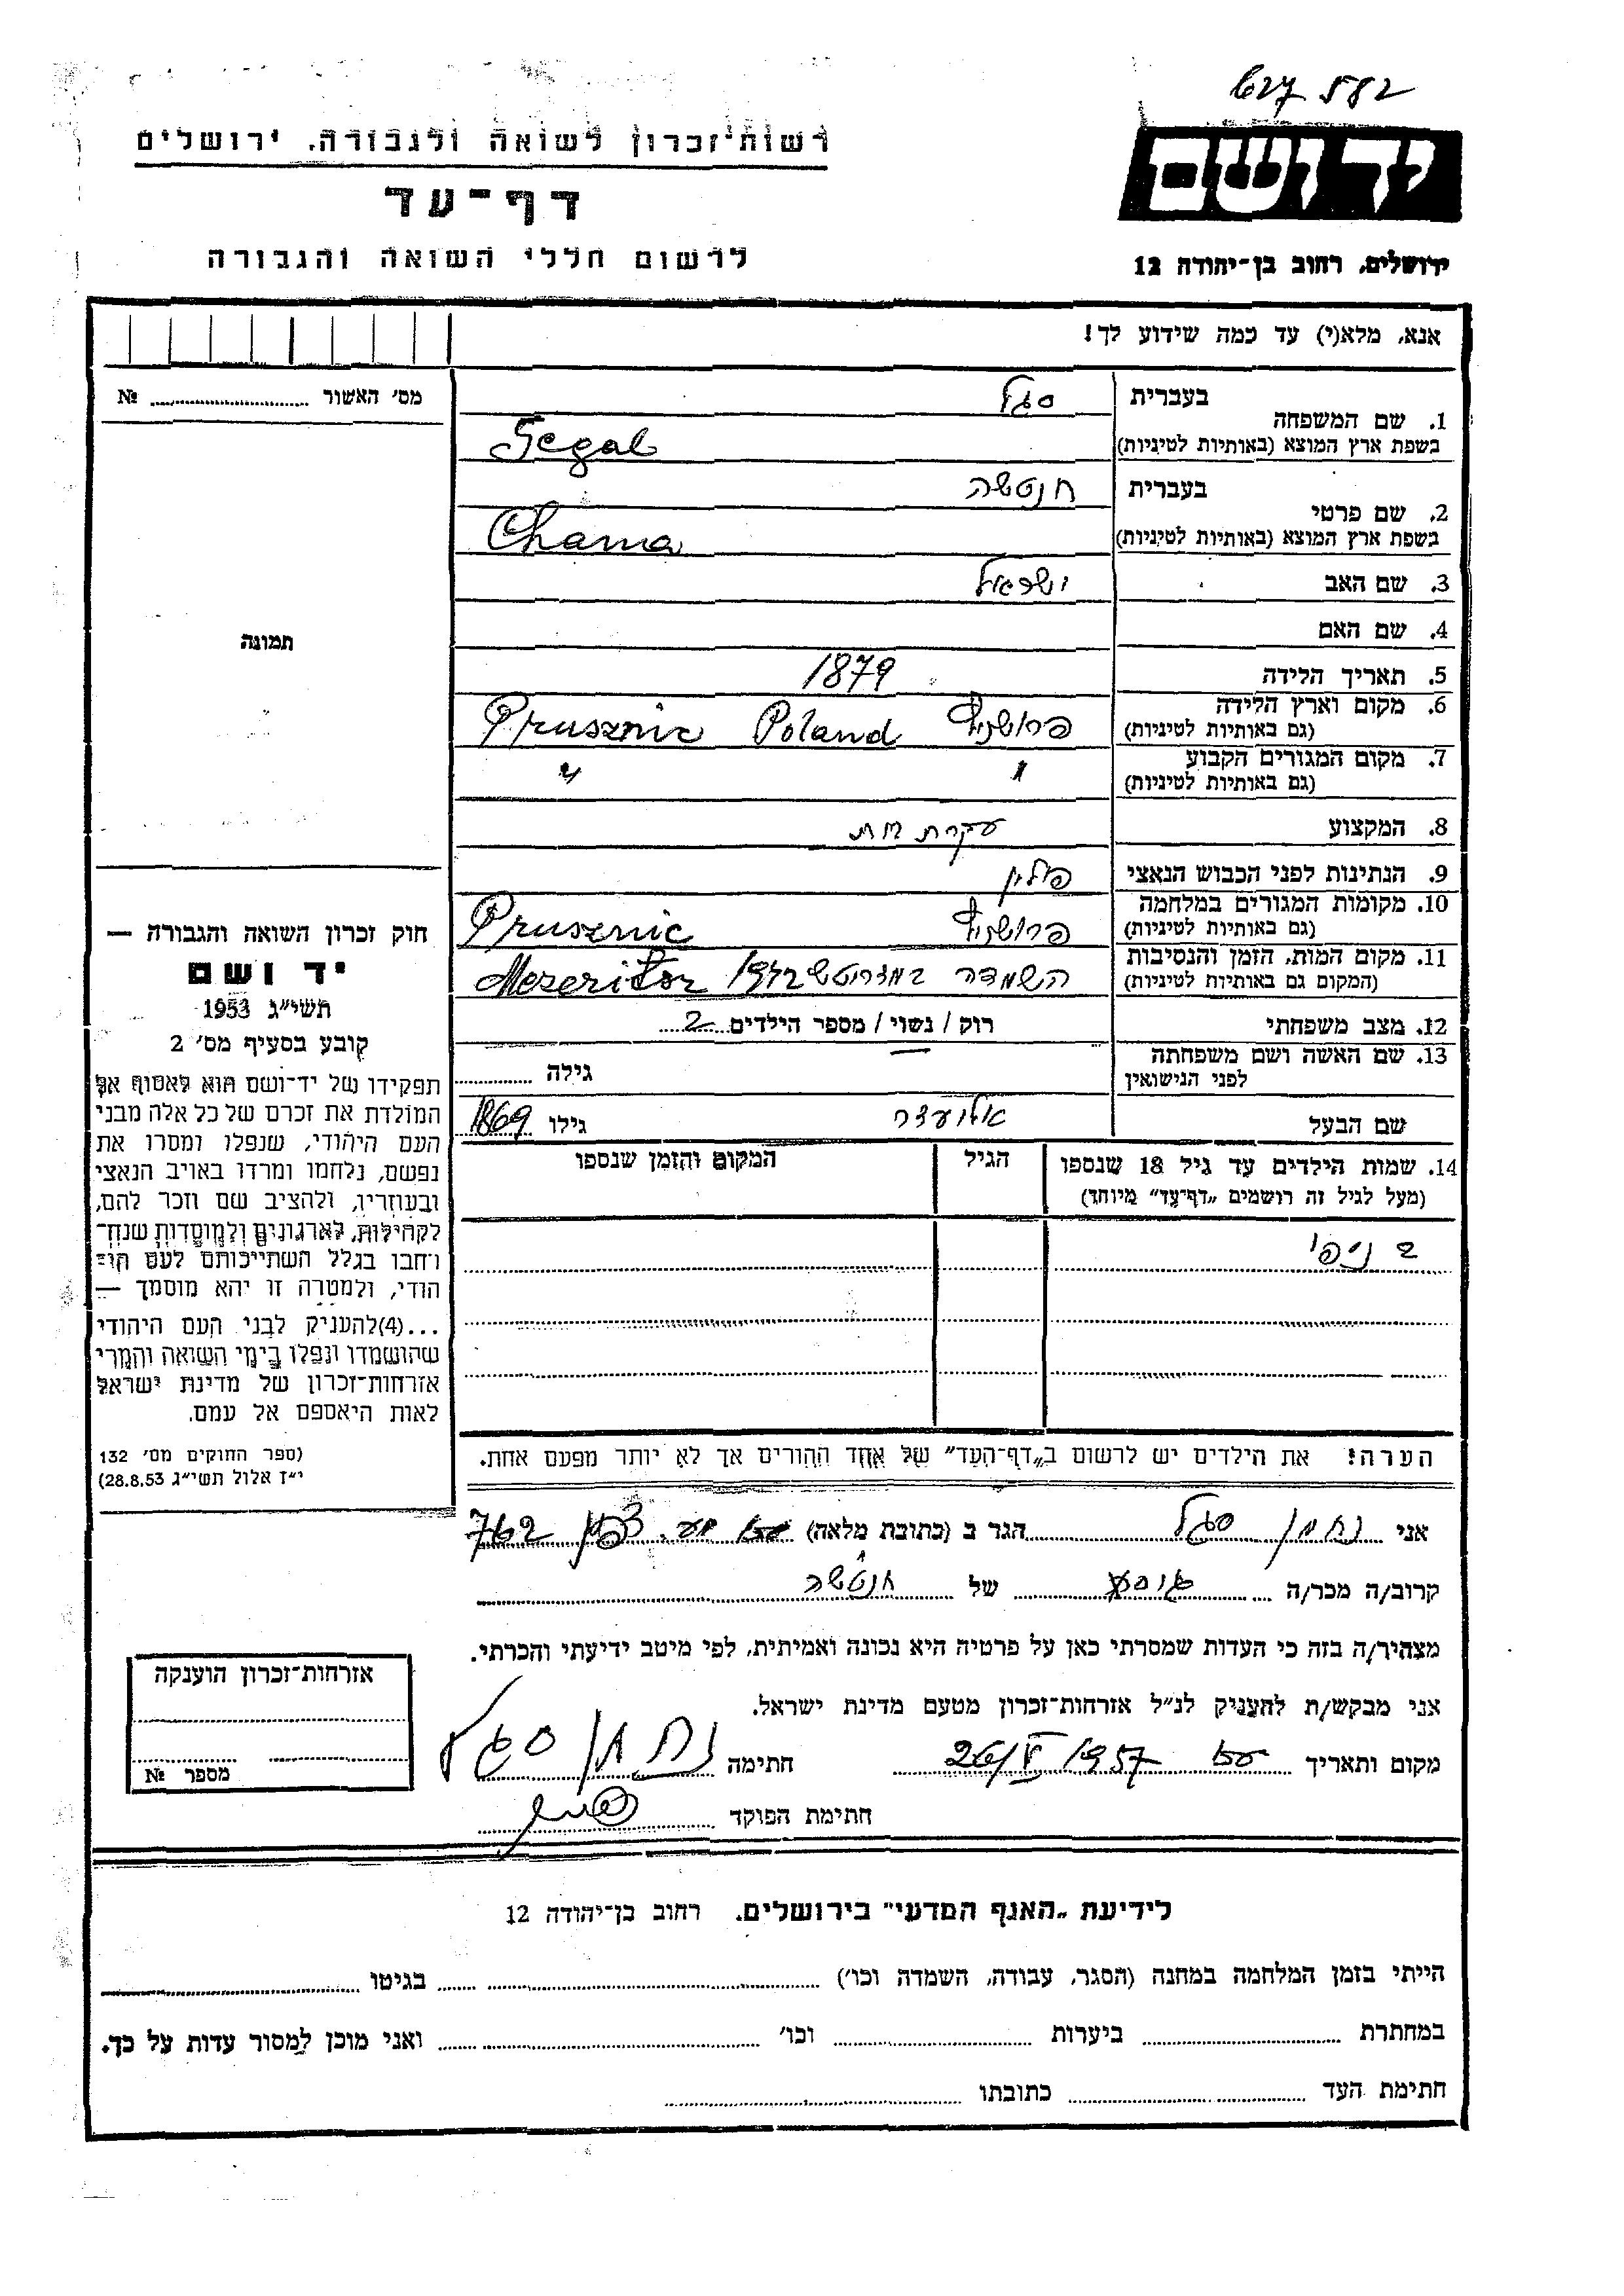 627 582
רשות־זכרון לשואה ולגבורה. ירושלים
יד ושם
דף־עד
לרשום חללי השואה והגבורה
ירושלים, רחוב בן־יהודה 12
אנא, מלא(י) עד כמה שידוע לך!
מס׳ האשור № ........
בעברית סגל
1. שם המשפחה
בשפת ארץ המוצא (באותיות לטיניות) Segal
בעברית חנטשה
2. שם פרטי
בשפת ארץ המוצא (באותיות לטיניות) Chama
3. שם האב ישראל
4. שם האם
5. תאריך הלידה 1879
6. מקום וארץ הלידה
(גם באותיות לטיניות) פרושניץ Prusznic Poland
7. מקום המגורים הקבוע
(גם באותיות לטיניות) " "
8. המקצוע עקרת בית
9. הנתינות לפני הכבוש הנאצי פולין
10. מקומות המגורים במלחמה
(גם באותיות לטיניות) פרושניץ Prusznic
11. מקום המות, הזמן והנסיבות
(המקום גם באותיות לטיניות) השמדה במזריטש 1942
12. מצב משפחתי רוק / נשוי / מספר הילדים 2
13. שם האשה ושם משפחתה
לפני הנישואין גילה ........
שם הבעל גילו 1869
14. שמות הילדים עד גיל 18 שנספו הגיל המקום והזמן שנספו
(מעל לגיל זה רושמים „דף־עד” מיוחד)
הערה! את הילדים יש לרשום ב„דף־העד” של אחד ההורים אך לא יותר מפעם אחת.
תמונה
חוק זכרון השואה והגבורה —
יד ושם
תשי״ג 1953
קובע בסעיף מס׳ 2
תפקידו של יד־ושם הוא לאסוף אל
המולדת את זכרם של כל אלה מבני
העם היהודי, שנפלו ומסרו את
נפשם, נלחמו ומרדו באויב הנאצי
ובעוזריו, ולהציב שם וזכר להם,
לקהילות, לארגונים ולמוסדות שנח־
רבו בגלל השתייכותם לעם הי־
הודי, ולמטרה זו יהא מוסמך —
...(4)להעניק לבני העם היהודי
שהושמדו ונפלו בימי השואה והמרי
אזרחות־זכרון של מדינת ישראל
לאות היאספם אל עמם.
(ספר החוקים מס׳ 132
י״ז אלול תשי״ג 28.8.53)
אני נחמן סגל הגר ב (כתובת מלאה) 762
קרוב/ה מכר/ה של חנטשה
מצהיר/ה בזה כי העדות שמסרתי כאן על פרטיה היא נכונה ואמיתית, לפי מיטב ידיעתי והכרתי.
אני מבקש/ת להעניק לנ״ל אזרחות־זכרון מטעם מדינת ישראל.
מקום ותאריך 26/V 1957 חתימה נחמן סגל
חתימת הפוקד
אזרחות־זכרון הוענקה
מספר №
לידיעת „האגף המדעי” בירושלים. רחוב בן־יהודה 12
הייתי בזמן המלחמה במחנה (הסגר, עבודה, השמדה וכו׳) ........ בגיטו ........
במחתרת ........ ביערות ........ וכו׳ ........ ואני מוכן למסור עדות על כך.
חתימת העד ........ כתובתו ........